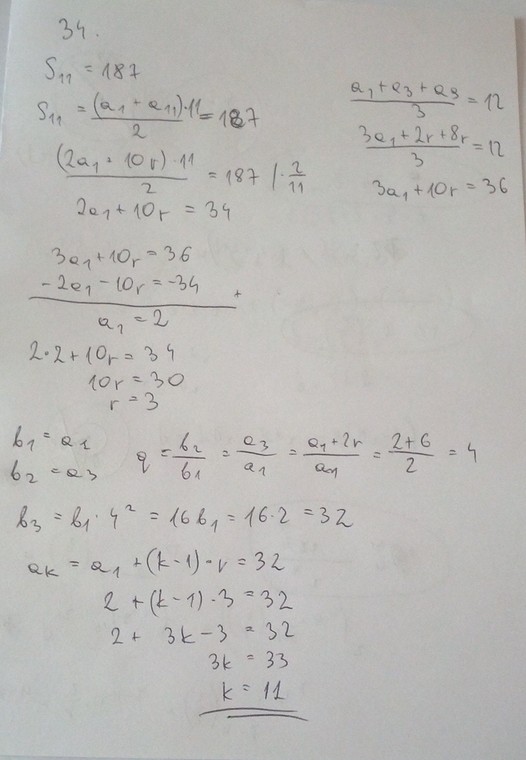 34.
S₁₁ = 187
S₁₁ = (a₁ + a₁₁)·11 / 2 = 187
(2a₁ + 10r)·11 / 2 = 187 /· 2/11
2a₁ + 10r = 34
(a₁ + a₃ + a₉) / 3 = 12
(3a₁ + 2r + 8r) / 3 = 12
3a₁ + 10r = 36
3a₁ + 10r = 36
- 2a₁ - 10r = -34 +
a₁ = 2
2·2 + 10r = 34
10r = 30
r = 3
b₁ = a₁
b₂ = a₃
q = b₂/b₁ = a₃/a₁ = (a₁ + 2r)/a₁ = (2+6)/2 = 4
b₃ = b₁ · 4² = 16b₁ = 16·2 = 32
aₖ = a₁ + (k-1)·r = 32
2 + (k-1)·3 = 32
2 + 3k - 3 = 32
3k = 33
k = 11